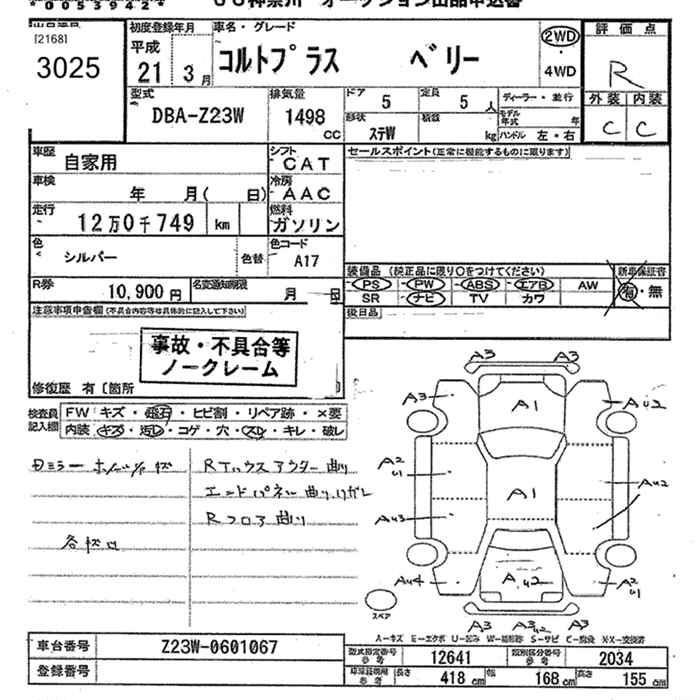 *0053942*
[2168]
3025
初度登録年月
平成
21 3月
車名・グレード
コルトプラス ベリー
2WD
・
4WD
評価点
R
外装 内装
C C
型式
DBA-Z23W
排気量
1498
CC
ドア 5
定員 5 人
形状 ステW
積載 kg
ディーラー・並行
モデル年式 年
ハンドル 左・右
車歴 自家用
シフト CAT
車検 年 月( 日)
冷房 AAC
走行 12万0千749 km
燃料 ガソリン
色 シルバー
色替
色コード A17
R券 10,900円
名変通知期限 月 日
セールスポイント(正常に機能するものに限ります)
装備品 (純正品に限り○をつけてください)
新車保証書
PS PW ABS エアB AW
SR ナビ TV カワ
有・無
後日品
注意事項申告欄(不具合内容等は具体的に記入して下さい)
事故・不具合等
ノークレーム
修復歴 有〔箇所
検査員記入欄
FW キズ・飛石・ヒビ割・リペア跡・×要
内装 キズ・汚レ・コゲ・穴・スレ・キレ・破レ
RTハウスアウター曲り
エンドパネル曲り
Rフロア曲り
A3 A3
A3 A1 AU2
A2 U1
A1
AU2
AU3
AU4 A U2 A2 U1
A3 A3 U2 A3
スペア
A-キズ E-エクボ U-凹み W-補修跡 S-サビ C-腐食 X・XX-交換済
車台番号 Z23W-0601067
登録番号
型式指定番号 参考 12641
類別区分番号 参考 2034
長さ 418 cm
幅 168 cm
高さ 155 cm